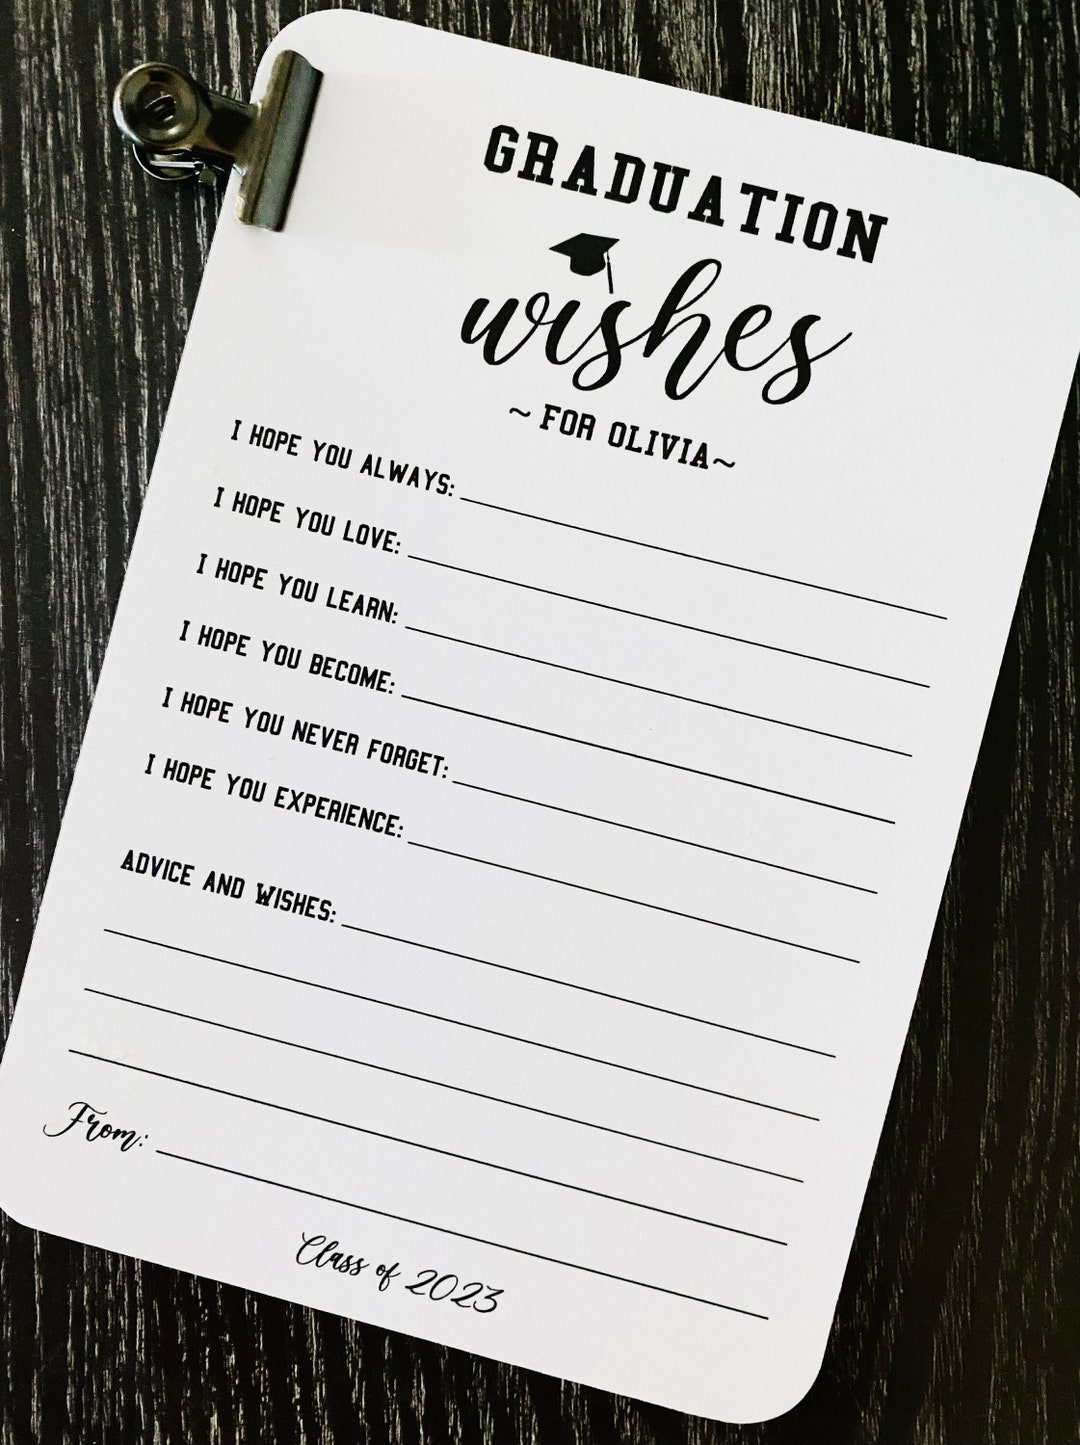 GRADUATION
wishes
~ FOR OLIVIA~
I HOPE YOU ALWAYS:
I HOPE YOU LOVE:
I HOPE YOU LEARN:
I HOPE YOU BECOME:
I HOPE YOU NEVER FORGET:
I HOPE YOU EXPERIENCE:
ADVICE AND WISHES:
From:
Class of 2023